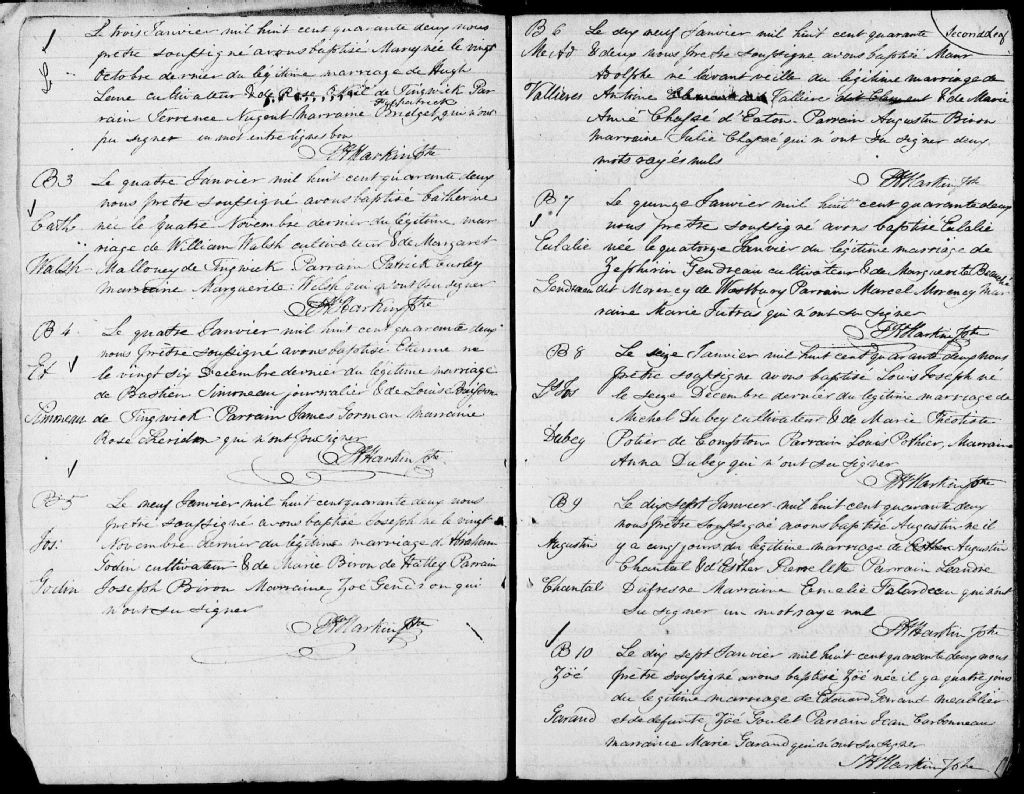 Le trois Janvier mil huit cent quarante deux nous
prêtre soussigné avons baptisé Mary née le vingt
Octobre dernier du légitime marriage de Hugh
cultivateur & de Rose de Tingwick Par
rain Terrence Nugent Marraine Bridget Fitzpatrick qui n'ont
pu signer un mot entre lignes bon
Harkin Ptre
B 3
Cath
Walsh
Le quatre Janvier mil huit cent quarante deux
nous prêtre soussigné avons baptisé Catherine
née le quatre Novembre dernier du légitime mar
riage de William Walsh cultivateur & de Margaret
Malloney de Tingwick Parrain Patrick Curley
marraine Marguerite Welsh qui n'ont pu signer
Harkin Ptre
B 4
Et
Simoneau
Le quatre Janvier mil huit cent quarante deux
nous prêtre soussigné avons baptisé Etienne né
le vingt six Décembre dernier du légitime marriage
de Bastien Simoneau journalier & de Louise
de Tingwick Parrain James Gorman Marraine
Rose Sheridan qui n'ont pu signer
Harkin Ptre
B 5
Jos:
Godin
Le neuf Janvier mil huit cent quarante deux nous
prêtre soussigné avons baptisé Joseph né le vingt
Novembre dernier du légitime marriage d'Abraham
Godin cultivateur & de Marie Biron de Hatley Parrain
Joseph Biron Marraine Zoé Gendron qui
n'ont su signer
Harkin Ptre
Second Leaf
B 6
Vallières
Le dix neuf Janvier mil huit cent quarante
& deux nous prêtre soussigné avons baptisé
Adolphe né l'avant veille du légitime marriage de
Antoine Vallière dit Clement & de Marie
Chassé d'Eaton. Parrain Augustin Biron
marraine Julie Chassé qui n'ont su signer deux
mots rayés nuls
Harkin Ptre
B 7
Eulalie
Gendreau
Le quinze Janvier mil huit cent quarante deux
nous prêtre soussigné avons baptisé Eulalie
née le quatorze Janvier du légitime marriage de
Zephirin Gendreau cultivateur & de Marguerite
dit Morency de Westbury Parrain Marcel Morency Mar
raine Marie Jutras qui n'ont su signer
Harkin Ptre
B 8
Ls Jos
Dubey
Le seize Janvier mil huit cent quarante deux nous
prêtre soussigné avons baptisé Louis Joseph né
le seize Décembre dernier du légitime marriage de
Michel Dubey cultivateur & de Marie Theotiste
Potier de Compton Parrain Louis Pothier, Marraine
Anna Dubey qui n'ont su signer
Harkin Ptre
B 9
Augustin
Chantal
Le dix sept Janvier mil huit cent quarante deux
nous prêtre soussigné avons baptisé Augustin né il
y a cinq jours du légitime marriage de Esther Augustin
Chantal & d'Esther Parrain Leandre
Dufresne Marraine Emelie Falardeau qui n'ont
su signer un mot rayé nul
Harkin Ptre
B 10
Zöé
Garand
Le dix sept Janvier mil huit cent quarante deux nous
prêtre soussigné avons baptisé Zöé née il y a quatre jours
du légitime marriage de Edouard Garand meublier
et de defunte Zöé Goulet Parrain Jean Carbonneau
marraine Marie Garand qui n'ont su signer
Harkin Ptre